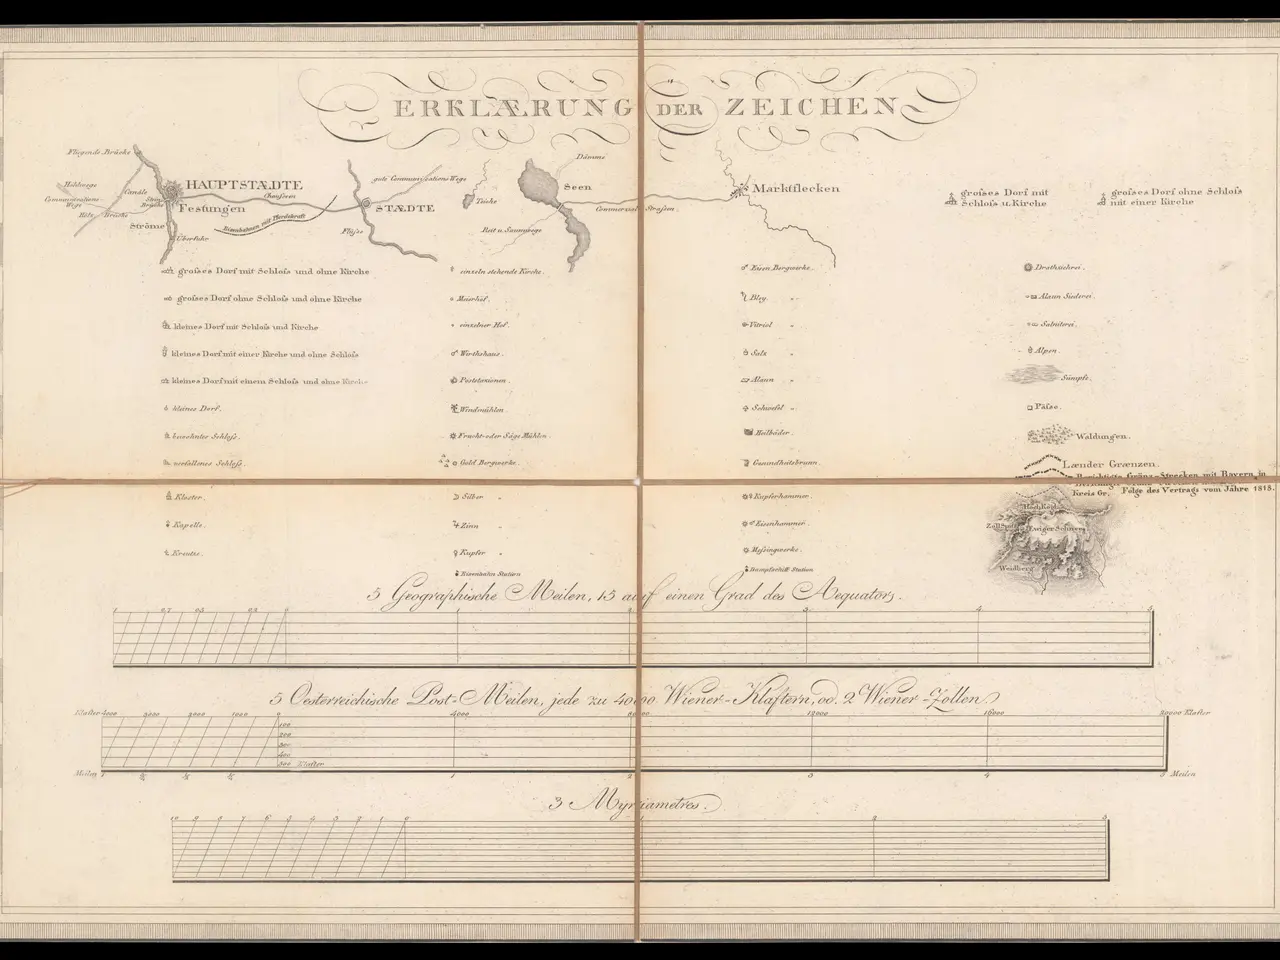 ERKLÆRUNG DER ZEICHEN
Fliegende Brücke
Hohlwege
Communications-
Wege
Canäle
Stein
Brücke
Höl: Brücke
HAUPTSTÆDTE
Chausseen
Festungen
Ströme
Überfuhr
Eisenbahnen mit Pferdekraft
gute Communications Wege
STÆDTE
Flüsse
Teiche
Reit u. Saumwege
Dämme
Seen
Commercial Strassen.
Marktflecken
grosses Dorf mit
Schloss u. Kirche
grosses Dorf ohne Schloss
mit einer Kirche
grosses Dorf mit Schloss und ohne Kirche
grosses Dorf ohne Schloss und ohne Kirche
kleines Dorf mit Schloss und Kirche
kleines Dorf mit einer Kirche und ohne Schloss
kleines Dorf mit einem Schloss und ohne Kirche
kleines Dorf.
bewohntes Schloss.
verfallenes Schloss.
Kloster.
Kapelle.
Kreutze.
einzeln stehende Kirche.
Maierhof.
einzelner Hof.
Wirthshaus.
Poststazionen.
Windmühlen.
Frucht-oder Säge Mühlen.
Gold Bergwerke.
Silber "
Zinn "
Kupfer "
Eisenbahn Station
Eisen Bergwerke.
Bley. "
Vitriol "
Salz "
Alaun "
Schwefel "
Heilbäder.
Gesundheitsbrunn.
Kupferhammer.
Eisenhammer.
Messingwerke.
Dampfschiff Station
Drathzieherei.
Alaun Siederei.
Saliniterei.
Alpen.
Sümpfe.
Pässe.
Waldungen.
Lænder Grænzen.
Berichtigte Gränz-Strecken mit Bayern, in
Folge des Vertrags vom Jahre 1818.
Kreis Gr.
Hoch Kogl
Ewiger Schnee
Weidberg
5 Geographische Meilen, 15 auf einen Grad des Aequators.
1 0.7 0.5 0.2 0 1 2 3 4 5
5 Oesterreichische Post-Meilen, jede zu 4000 Wiener-Klaftern, od. 2 Wiener-Zollen
Klafter 4000 3000 2000 1000 0 4000 8000 12000 16000 20000 Klafter
100
200
300
400
500 Klafter
Meilen 1 ¾ ½ ¼ 1 2 3 4 5 Meilen
3 Myriametres.
10 9 8 7 6 5 4 3 2 1 0 1 2 3